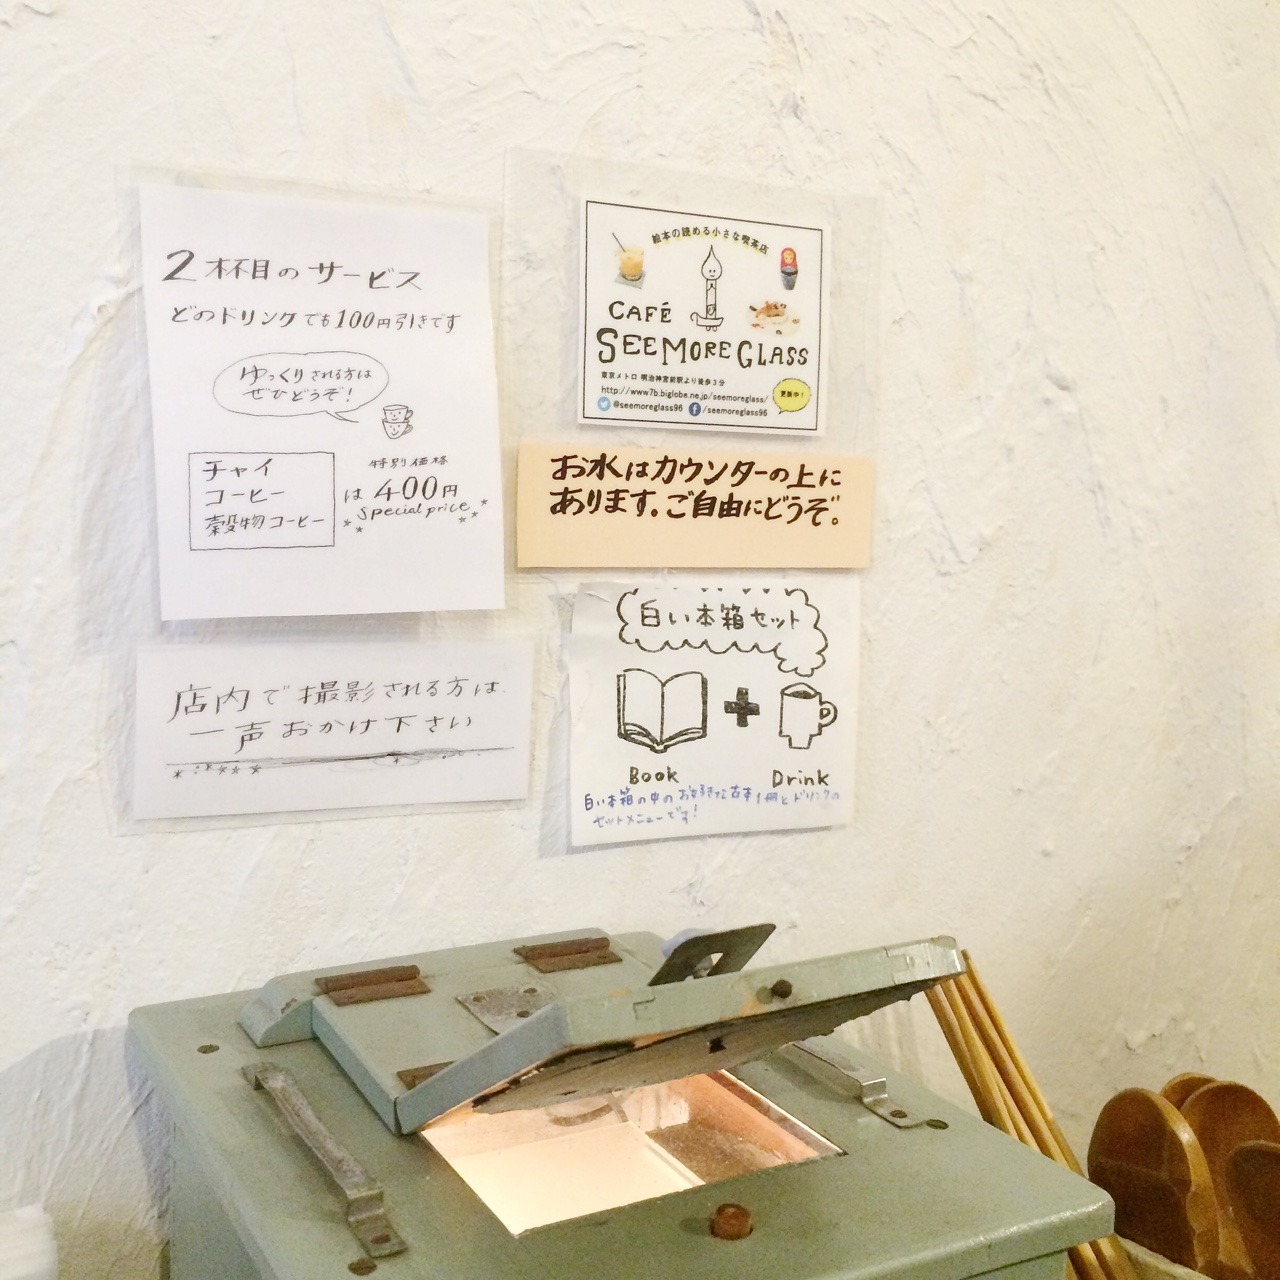 2杯目のサービス
どのドリンクでも100円引きです
ゆっくりされる方は
ぜひどうぞ!
チャイ
コーヒー
穀物コーヒー
特別価格
は400円
special price
店内で撮影される方は、
一声おかけ下さい
絵本の読める小さな喫茶店
CAFÉ
SEEMORE GLASS
東京メトロ 明治神宮前駅より徒歩3分
http://www7b.biglobe.ne.jp/seemoreglass/
更新中!
@seemoreglass96 /seemoreglass96
お水はカウンターの上に
あります。ご自由にどうぞ。
白い本箱セット
Book Drink
白い本箱の中のお好きな古本1冊とドリンクの
セットメニューです!